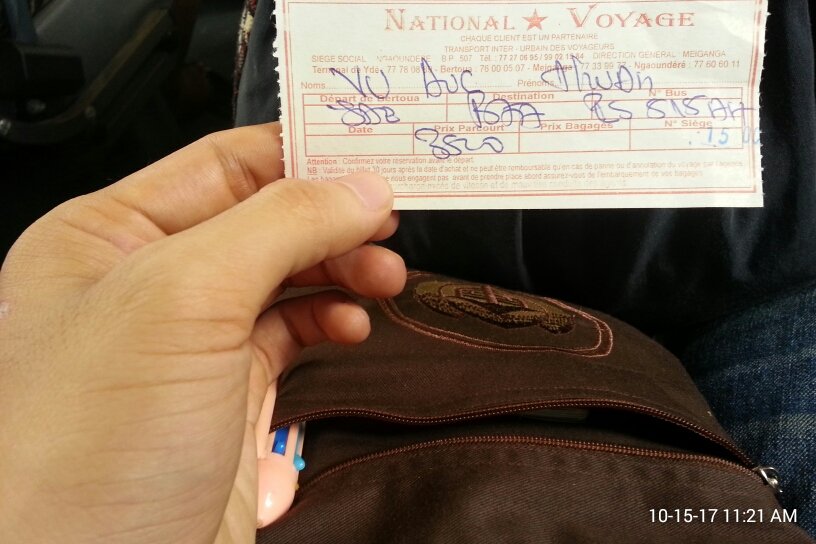 NATIONAL ★ VOYAGE
CHAQUE CLIENT EST UN PARTENAIRE
TRANSPORT INTER - URBAIN DES VOYAGEURS
SIEGE SOCIAL NGAOUNDERE B P 507 Tél. : 77 27 06 95 / 99 02 15 84 DIRECTION GENERAL MEIGANGA
Terminal de Yde 77 78 08 - Bertoua : 76 00 05 07 - Meiganga : 77 33 99 - Ngaoundéré : 77 60 60 11
Noms Vu Duc Prénoms Thuan
Départ de Bertoua Destination N° Bus
Date Prix Parcourt Prix Bagages N° Siège
3500 15
Attention : Confirmez votre réservation avant le départ.
NB : Validité du billet 10 jours après la date d'achat et ne peut être remboursable qu'en cas de panne ou d'annulation du voyage par l'agence.
Les bagages ne nous engagent pas avant de prendre place abord assurez-vous de l'embarquement de vos bagages
10-15-17 11:21 AM